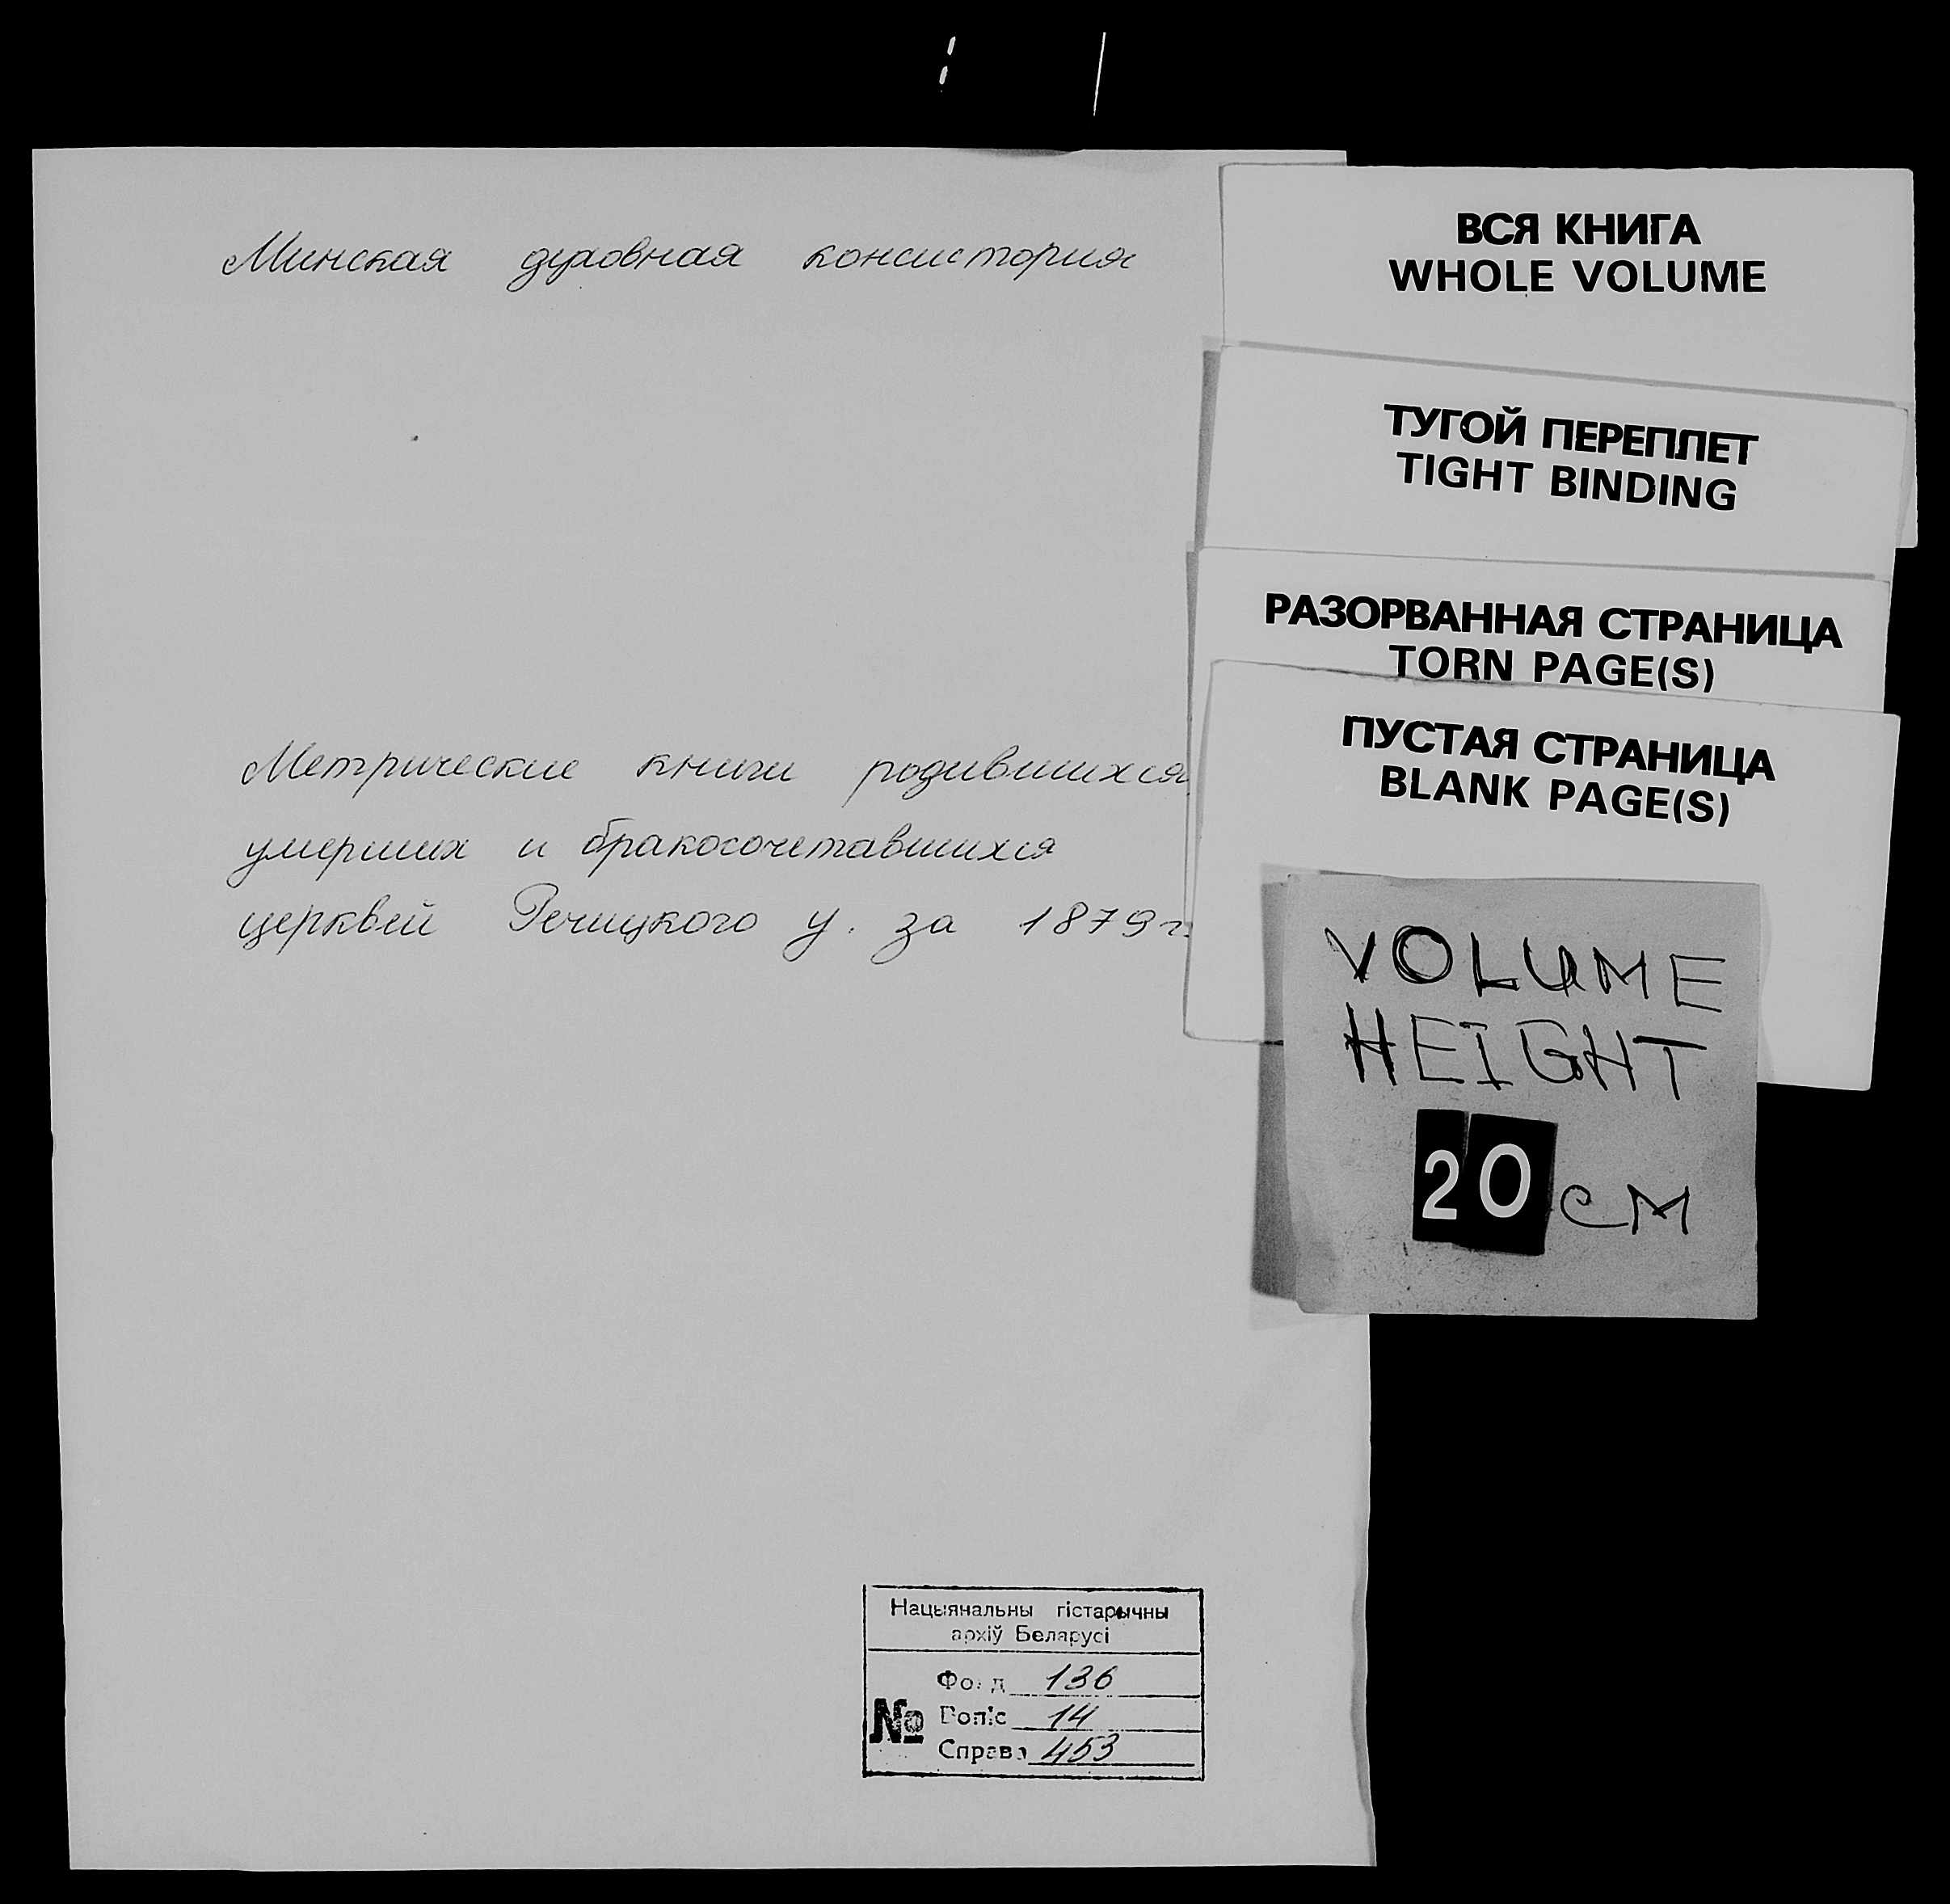 Минская духовная консистория
Метрические книги родившихся
умерших и бракосочетавшихся
церквей Речицкого у. за 1879 г.
ВСЯ КНИГА
WHOLE VOLUME
ТУГОЙ ПЕРЕПЛЕТ
TIGHT BINDING
РАЗОРВАННАЯ СТРАНИЦА
TORN PAGE(S)
ПУСТАЯ СТРАНИЦА
BLANK PAGE(S)
VOLUME
HEIGHT
20 см
Нацыянальны гістарычны
архіў Беларусі
Фонд 136
№ Вопіс 14
Справа 453